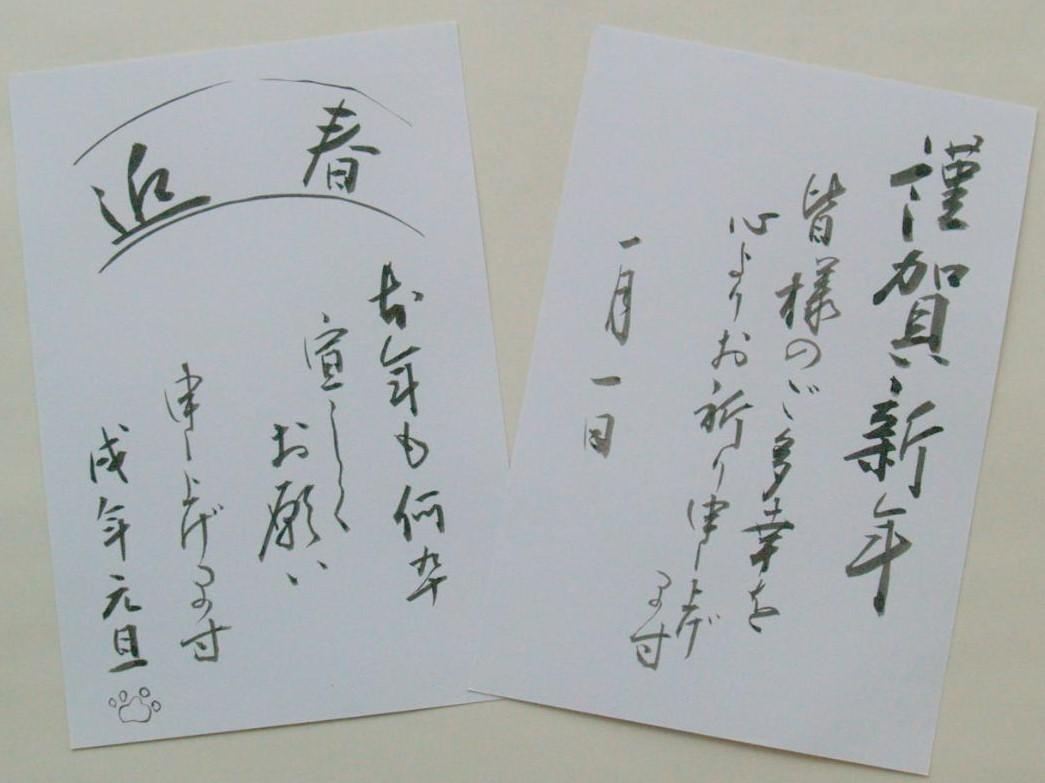 迎春
本年も何卒
宜しく
お願い
申し上げます
戌年元旦
謹賀新年
皆様のご多幸を
心よりお祈り申し上げ
ます
一月一日